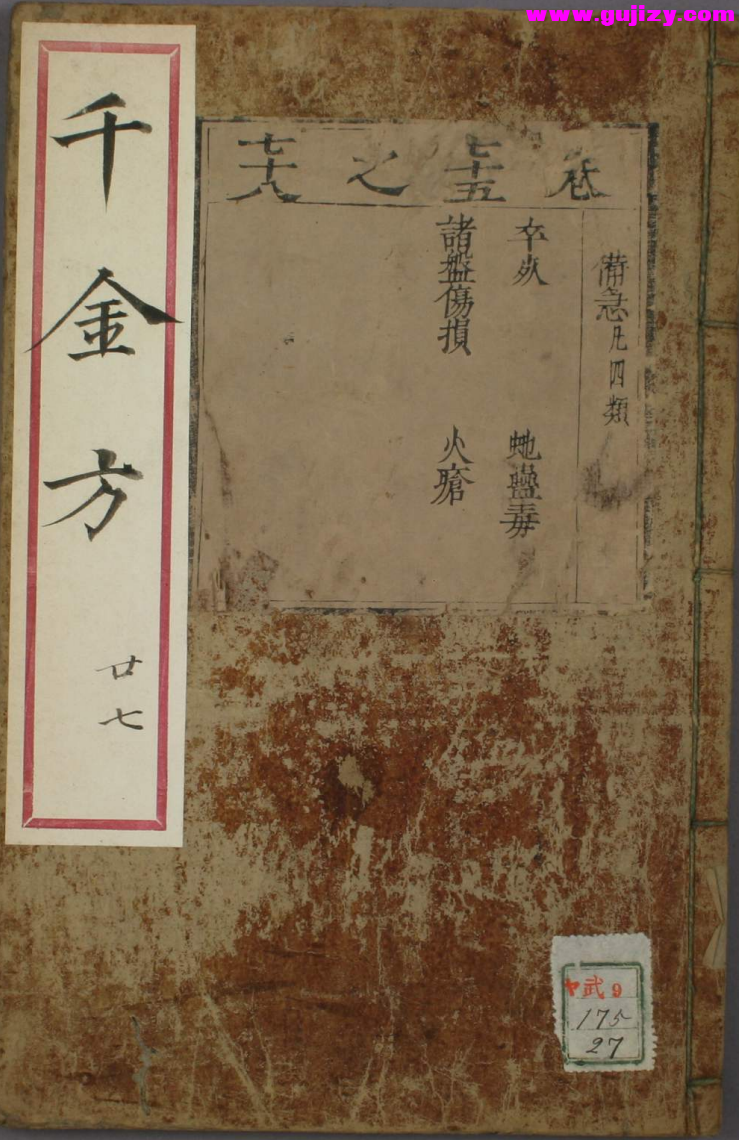 www.gujizy.com
卷七十五之七十八
備急凡四類
卒死
蛇蠱毒
諸盤傷損
火瘡
千金方
廿七
ヤ武9
175
27